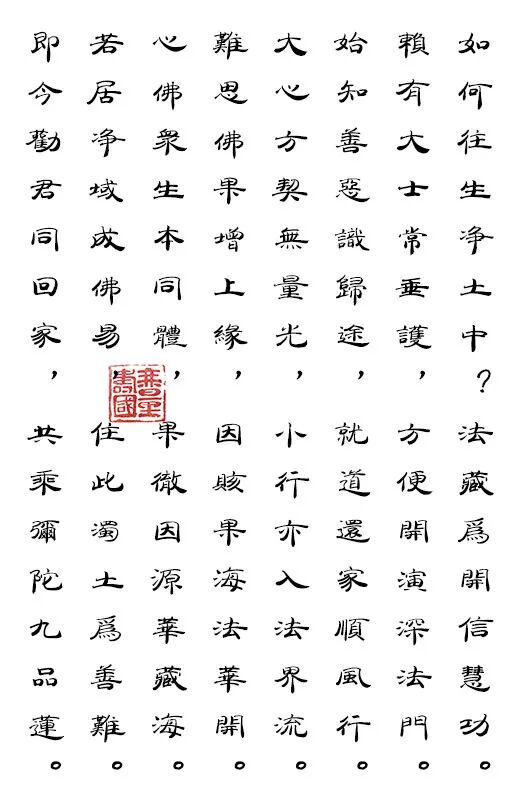 如何往生净土中？法藏爲開信慧功。
賴有大士常垂護，方便開演深法門。
始知善惡識歸途，就道還家順風行。
大心方契無量光，小行亦入法界流。
難思佛果增上緣，因賅果海法華開。
心佛衆生本同體，果徹因源華藏海。
若居净域成佛易，住此濁土爲善難。
即今勸君同回家，共乘彌陀九品蓮。